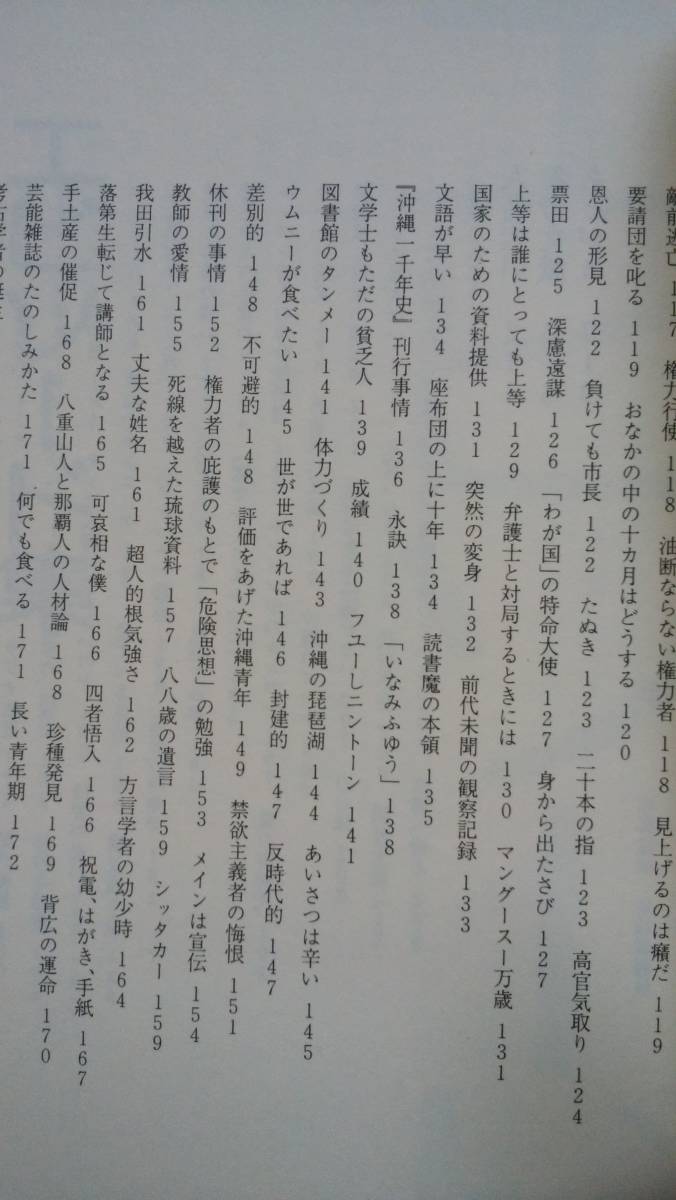 敵前逃亡 117　権力行使 118　油断ならない権力者 118　見上げるのは癪だ 119
要請団を叱る 119　おなかの中の十カ月はどうする 120
恩人の形見 122　負けても市長 122　たぬき 123　二十本の指 123　高官気取り 124
票田 125　深慮遠謀 126　「わが国」の特命大使 127　身から出たさび 127
上等は誰にとっても上等 129　弁護士と対局するときには 130　マングースー万歳 131
国家のための資料提供 131　突然の変身 132　前代未聞の観察記録 133
文語が早い 134　座布団の上に十年 134　読書魔の本領 135
『沖縄一千年史』刊行事情 136　永訣 138　「いなみふゆう」 138
文学士もただの貧乏人 139　成績 140　フユーしニントーン 141
図書館のタンメー 141　体力づくり 143　沖縄の琵琶湖 144　あいさつは辛い 145
ウムニーが食べたい 145　世が世であれば 146　封建的 147　反時代的 147
差別的 148　不可避的 148　評価をあげた沖縄青年 149　禁欲主義者の悔恨 151
休刊の事情 152　権力者の庇護のもとで「危険思想」の勉強 153　メインは宣伝 154
教師の愛情 155　死線を越えた琉球資料 157　八八歳の遺言 159　シッタカー 159
我田引水 161　丈夫な姓名 161　超人的根気強さ 162　方言学者の幼少時 164
落第生転じて講師となる 165　可哀相な僕 166　四者悟入 166　祝電、はがき、手紙 167
手土産の催促 168　八重山人と那覇人の人材論 168　珍種発見 169　背広の運命 170
芸能雑誌のたのしみかた 171　何でも食べる 171　長い青年期 172